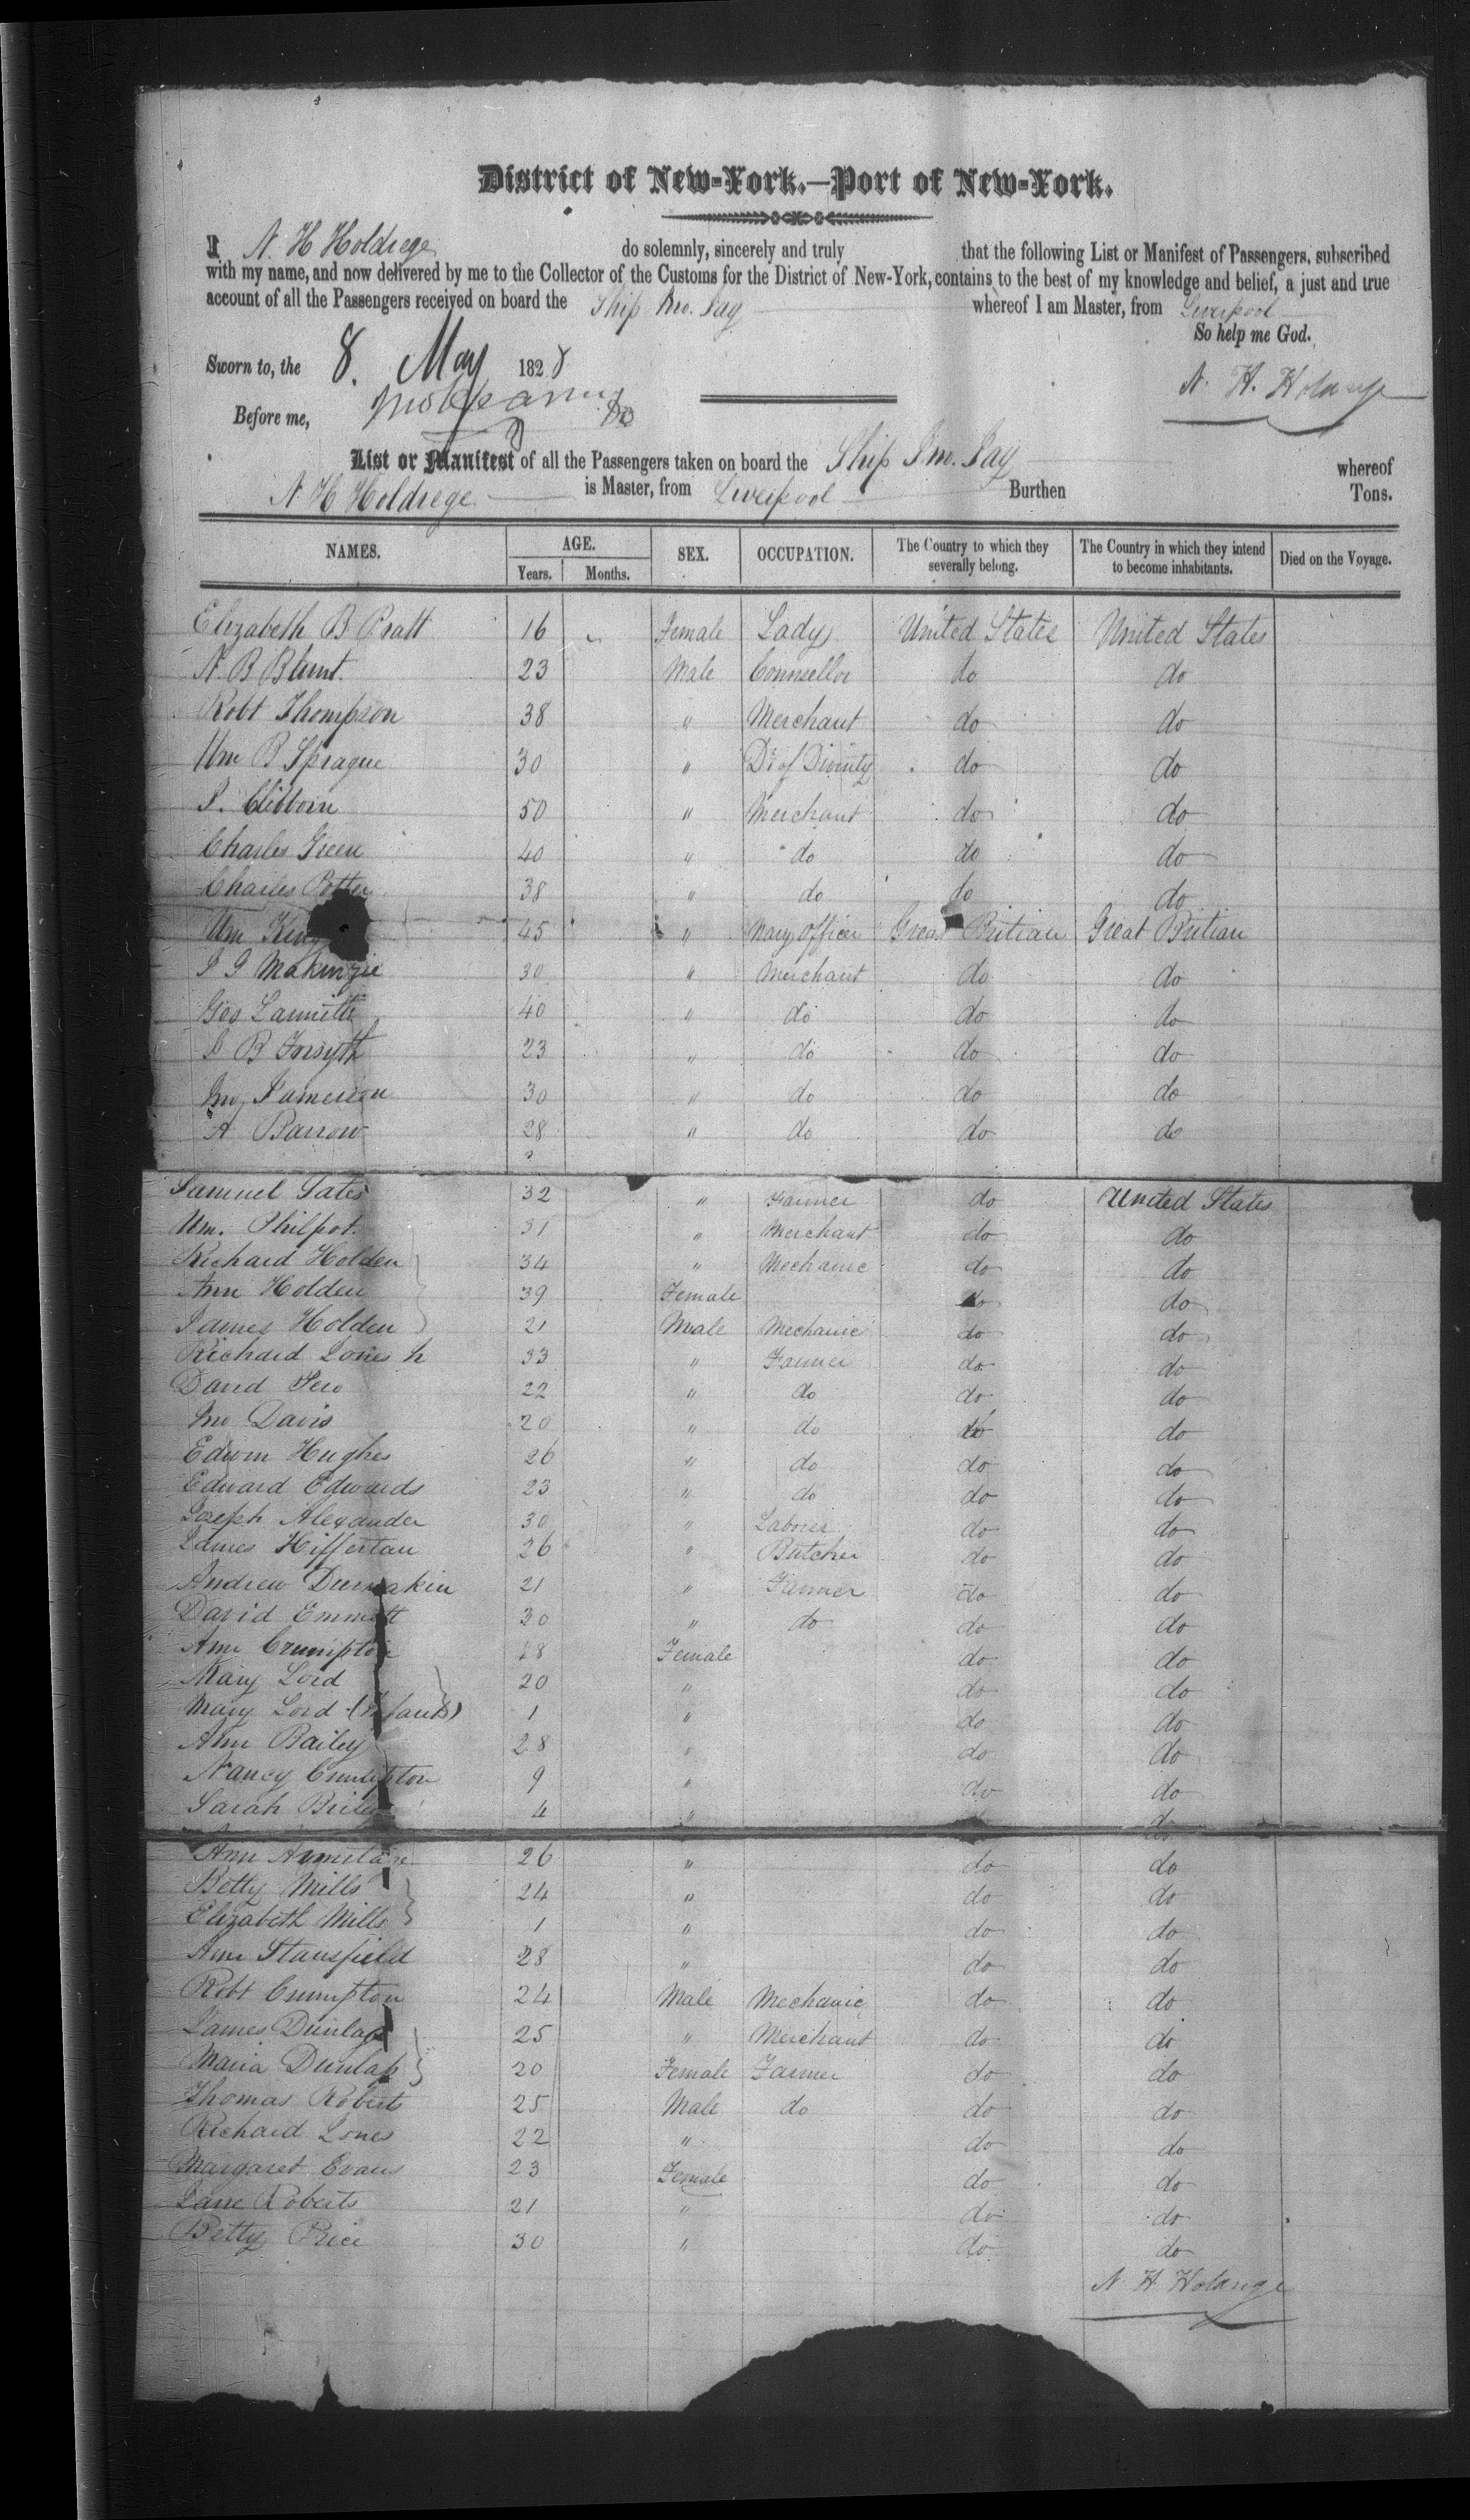 District of New-York.—Port of New-York.
I N. H Holdrege do solemnly, sincerely and truly that the following List or Manifest of Passengers, subscribed
with my name, and now delivered by me to the Collector of the Customs for the District of New-York, contains to the best of my knowledge and belief, a just and true
account of all the Passengers received on board the Ship Jno. Jay whereof I am Master, from Liverpool
So help me God.
Sworn to, the 8. May 1828
N. H. Holdrege
Before me,
List or Manifest of all the Passengers taken on board the Ship Jno. Jay whereof
N H Holdrege is Master, from Liverpool Burthen Tons.
NAMES. AGE. SEX. OCCUPATION. The Country to which they severally belong. The Country in which they intend to become inhabitants. Died on the Voyage.
Years. Months.
Elizabeth B Pratt 16 Female Lady United States United States
N. B Blunt. 23 Male Counsellor do do
Robt Thompson 38 " Merchant do do
Wm B Sprague 30 " Dr of Divinity do do
J. Clibborn 50 " Merchant do do
Charles Green 40 " do do do
Charles Potter 38 " do do do
Wm King 45 " Navy Officer Great Britian Great Britian
J G Makinzie 30 " Merchant do do
Geo 40 " do do do
J B Forsyth 23 " do do do
Jno Jameison 30 " do do do
A Barrow 28 " do do do
Samuel Tates 32 " Farmer do United States
Wm. Philpot. 31 " Merchant do do
Richard Holden 34 " Mechanic do do
Ann Holden 39 Female do do
James Holden 21 Male Mechanic do do
Richard Jones 33 " Farmer do do
David 22 " do do do
Jno Davis 20 " do do do
Edwin Hughes 26 " do do do
Edward Edwards 23 " do do do
Joseph Alexander 30 " Laborer do do
James Hiffertan 26 " Butcher do do
Andrew 21 " Farmer do do
David Emmett 30 " do do do
Ann Crumpton 28 Female do do
Mary Lord 20 " do do
Mary Lord (Infant) 1 " do do
Ann Bailey 28 " do do
Nancy Crumpton 9 " do do
Sarah 4 " do do
Ann 26 " do do
Betty Mills 24 " do do
Elizabeth Mills 1 " do do
Ann Stansfield 28 " do do
Robt Crumpton 24 Male Mechanic do do
James Dunlap 25 " Merchant do do
Maria Dunlap 20 Female Farmer do do
Thomas Roberts 25 Male do do do
Richard Jones 22 " do do
Margaret Evans 23 Female do do
Jane Roberts 21 " do do
Betty Price 30 " do do
N. H Holdrege